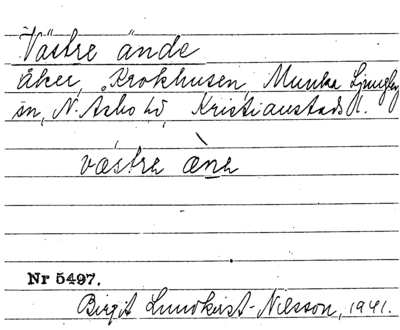 Västre ände
åker, Krokhusen, Munka Ljungby
sn, N. Åsbo hd, Kristianstads l.
västra äna
Nr 5497.
Birgit Lundkvist-Nilsson, 1941.